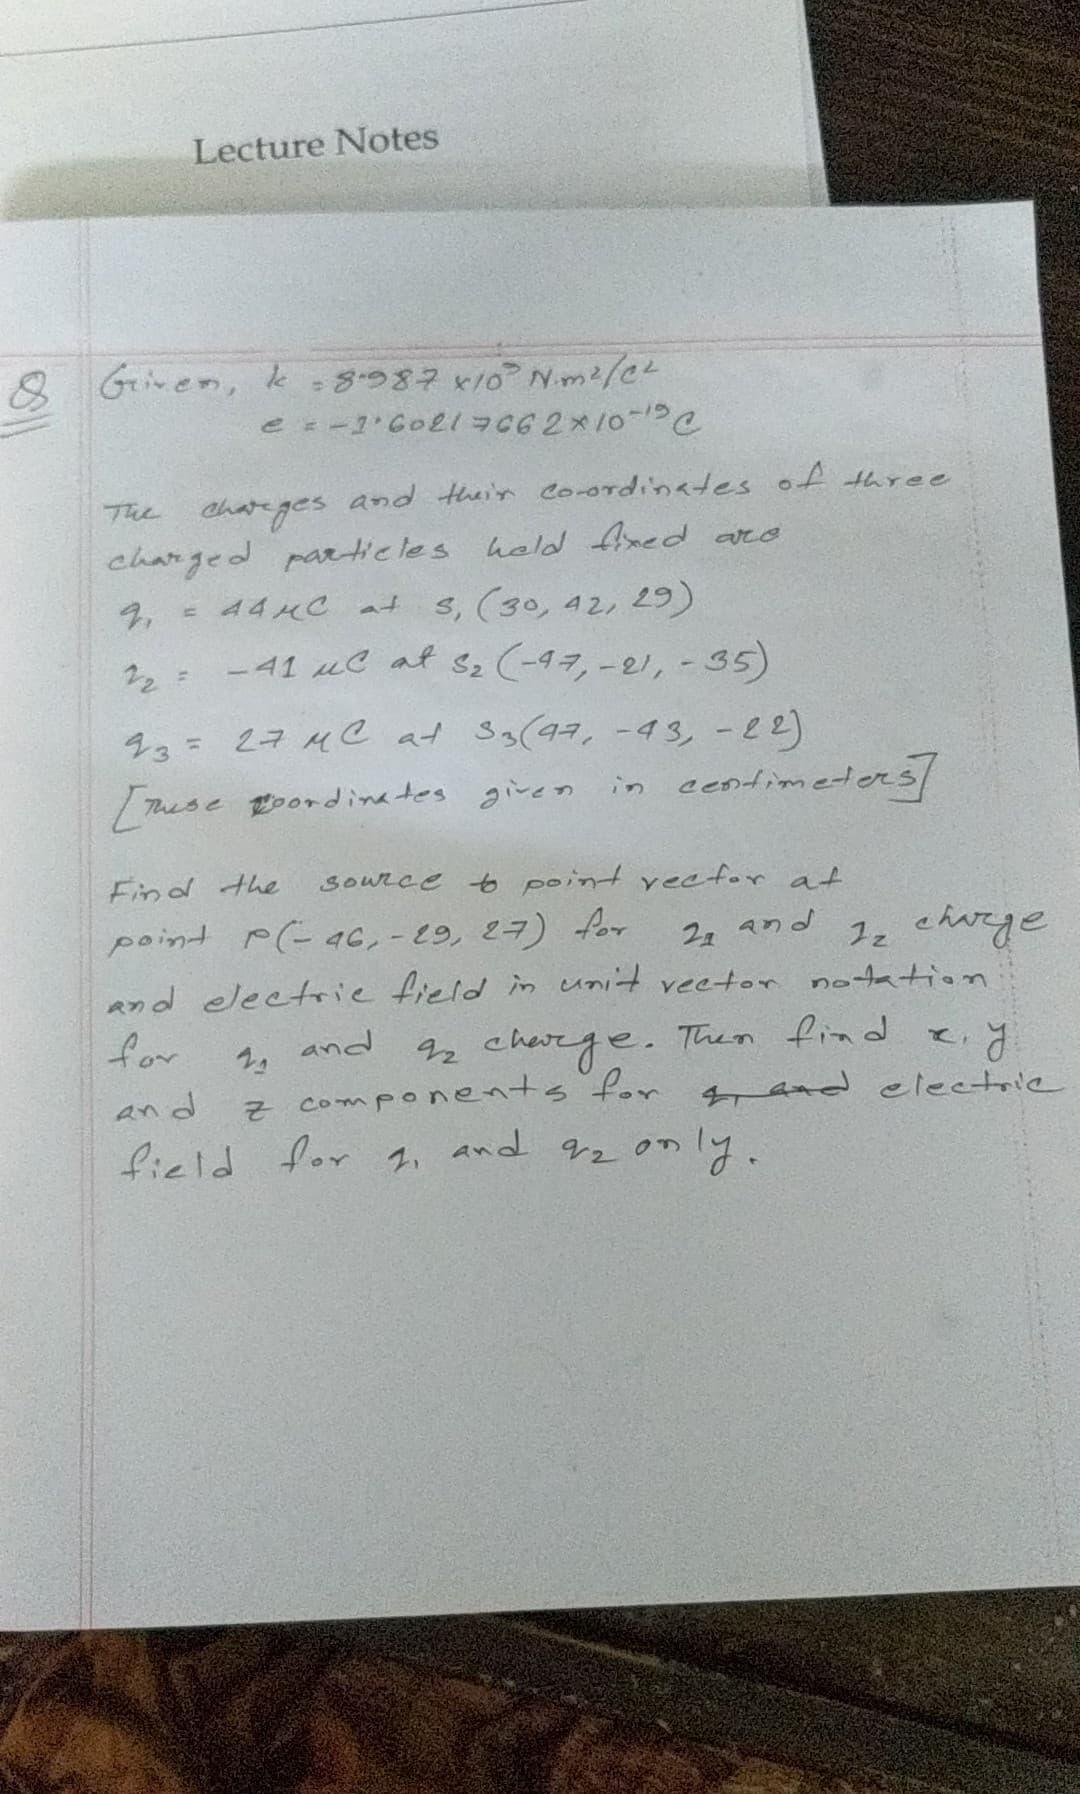 Lecture Notes
Q Given, k = 8.987 x10⁹ N.m²/c²
e = -1.60217662×10⁻¹⁹ C
The charges and their co-ordinates of three
charged particles held fixed are
q₁ = 44 μC at S₁ (30, 42, 29)
q₂ = -41 μC at S₂ (-47, -21, -35)
q₃ = 27 μC at S₃(47, -43, -22)
[These coordinates given in centimeters]
Find the source to point vector at
point P(-46, -29, 27) for q₁ and q₂ charge
and electric field in unit vector notation
for q₁ and q₂ charge. Then find x, y
and z components for q₁ and electric
field for q₁ and q₂ only.